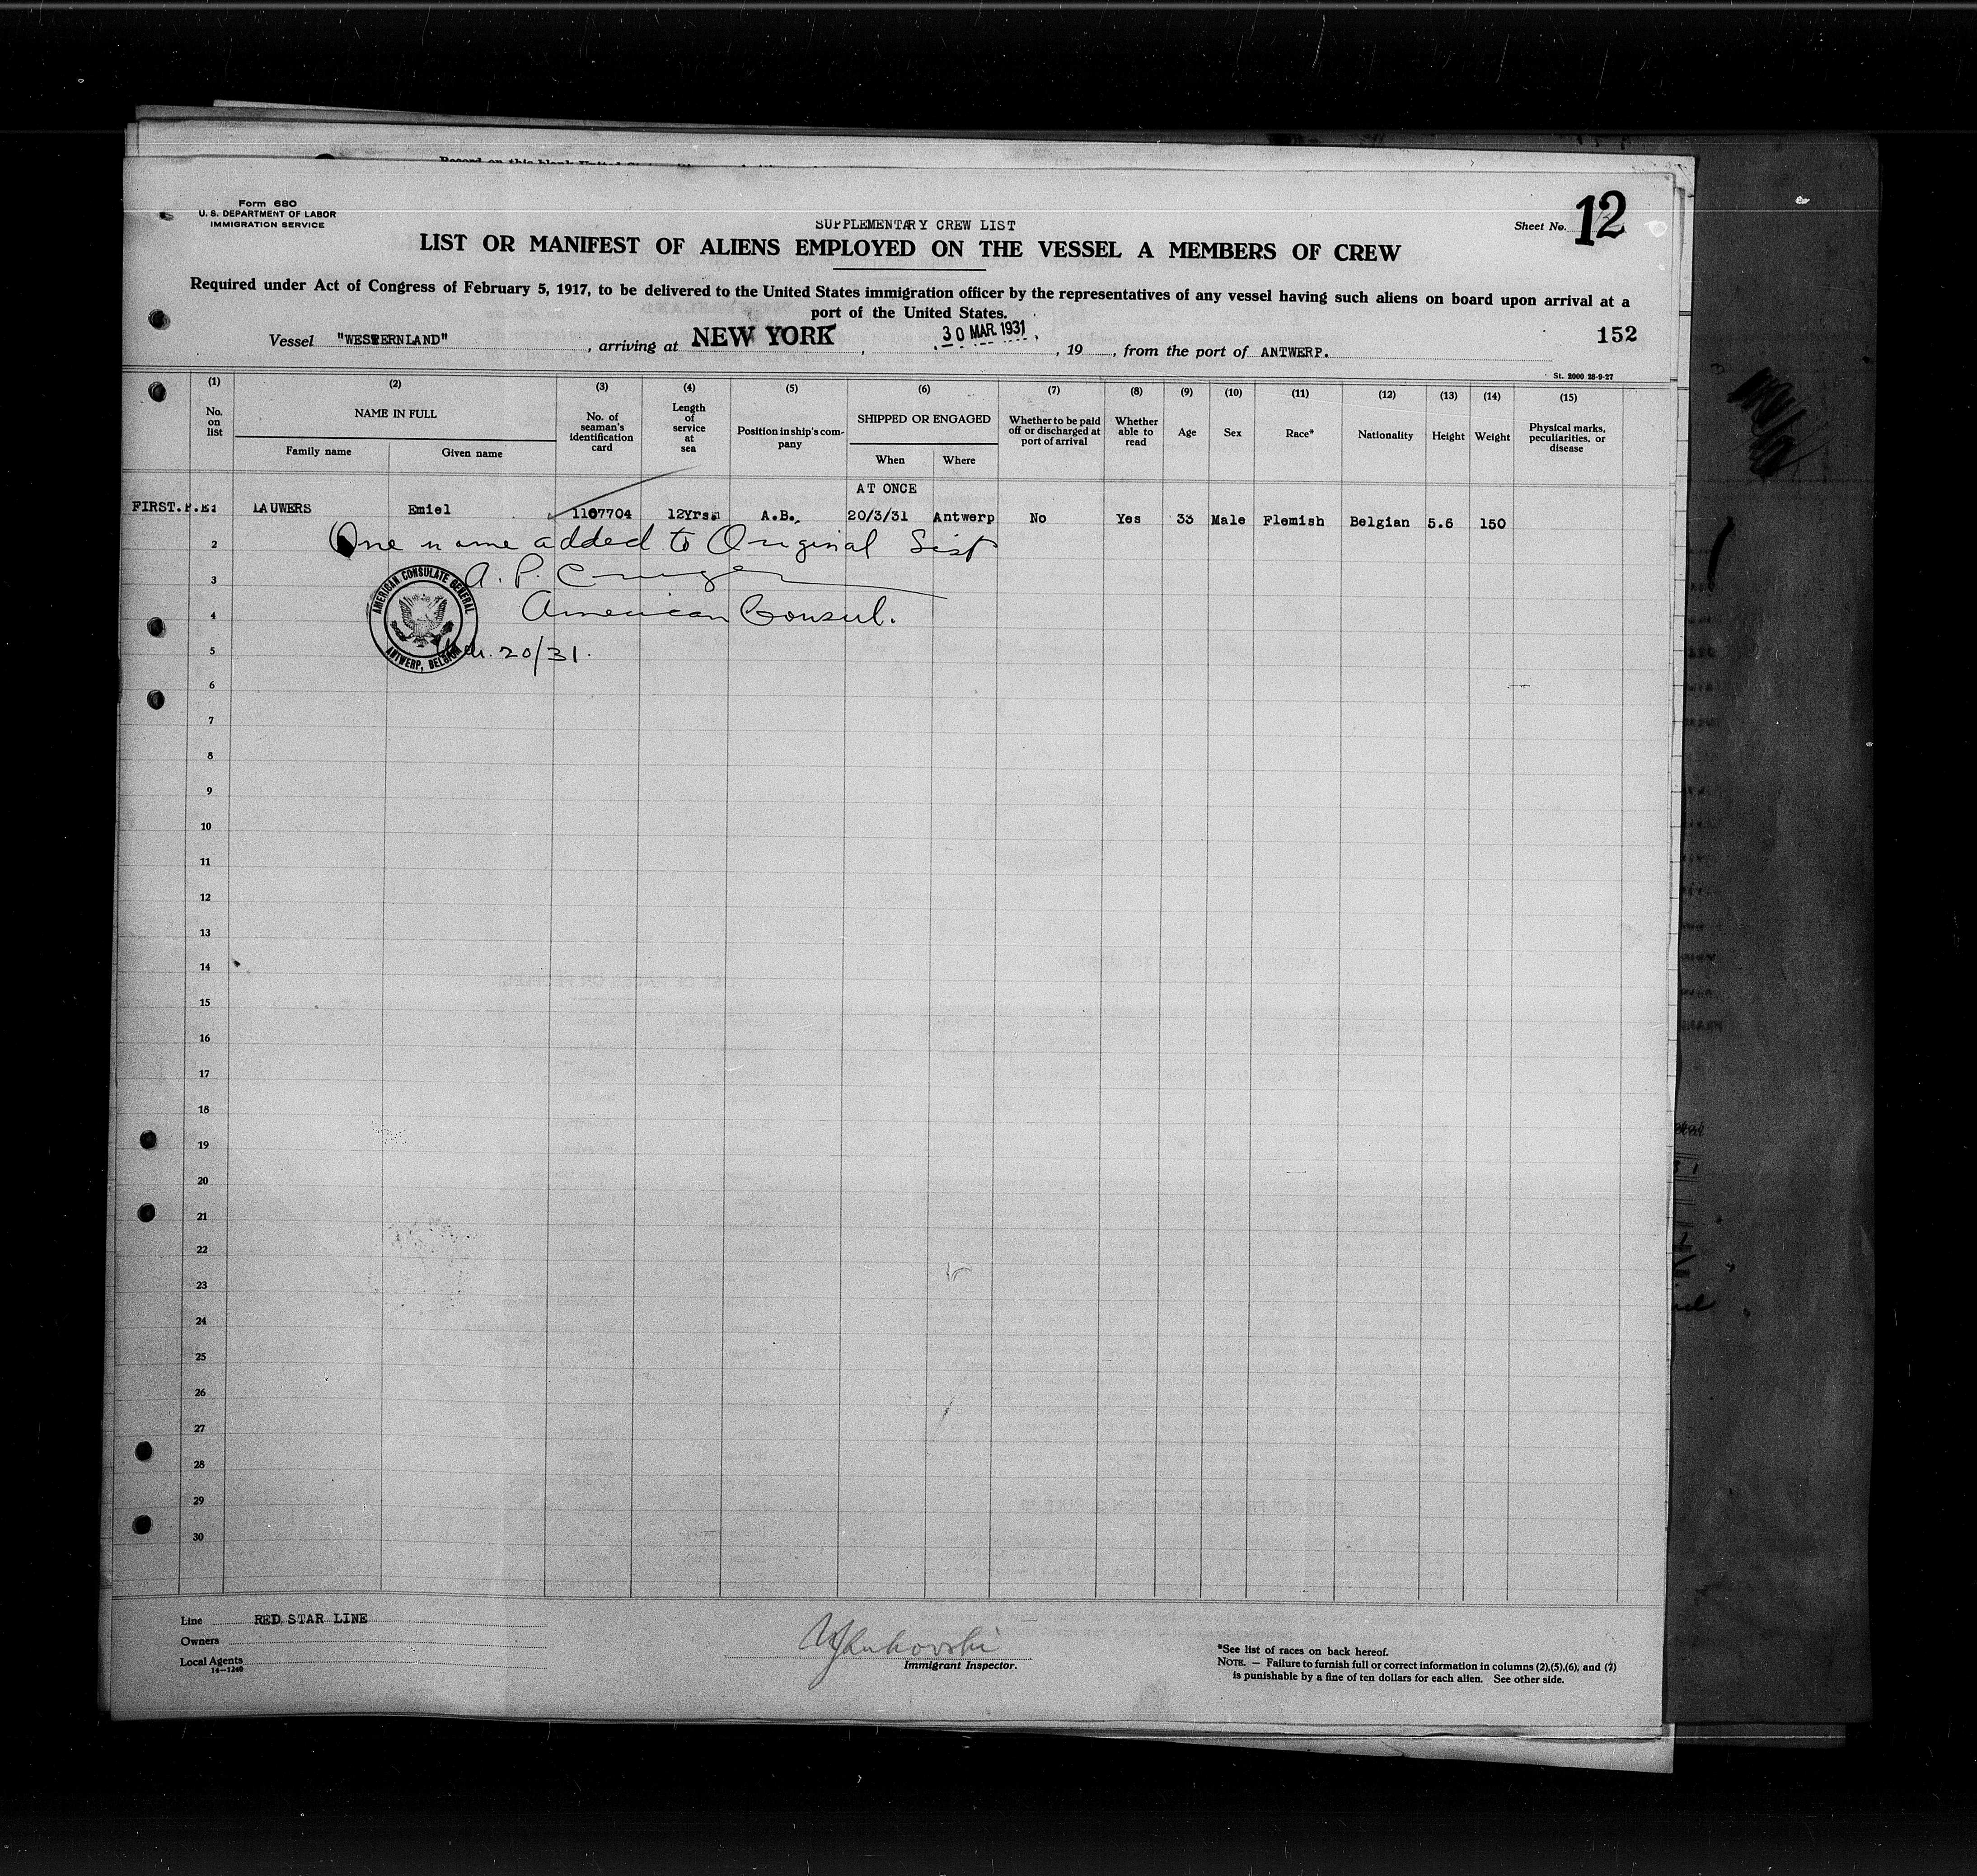 Form 680
U. S. DEPARTMENT OF LABOR
IMMIGRATION SERVICE
SUPPLEMENTARY CREW LIST
Sheet No. 12
LIST OR MANIFEST OF ALIENS EMPLOYED ON THE VESSEL A MEMBERS OF CREW
Required under Act of Congress of February 5, 1917, to be delivered to the United States immigration officer by the representatives of any vessel having such aliens on board upon arrival at a
port of the United States.
152
Vessel "WESTERNLAND", arriving at NEW YORK, 30 MAR. 1931, 19 , from the port of ANTWERP.
St. 2000 28-9-27
(1) (2) (3) (4) (5) (6) (7) (8) (9) (10) (11) (12) (13) (14) (15)
No. on list
NAME IN FULL
Family name
Given name
No. of seaman's identification card
Length of service at sea
Position in ship's company
SHIPPED OR ENGAGED
When
Where
Whether to be paid off or discharged at port of arrival
Whether able to read
Age
Sex
Race*
Nationality
Height
Weight
Physical marks, peculiarities, or disease
AT ONCE
FIRST. 1 LAUWERS Emiel 1107704 12Yrs. A.B. 20/3/31 Antwerp No Yes 33 Male Flemish Belgian 5.6 150
One name added to Original List
2
3
A. P. Cruger
4
American Consul.
AMERICAN CONSULATE GENERAL
ANTWERP, BELGIUM
5
Mch. 20/31.
6
7
8
9
10
11
12
13
14
15
16
17
18
19
20
21
22
23
24
25
26
27
28
29
30
Line RED STAR LINE
Owners
Local Agents
14—1240
Immigrant Inspector.
*See list of races on back hereof.
NOTE. — Failure to furnish full or correct information in columns (2),(5),(6), and (7)
is punishable by a fine of ten dollars for each alien. See other side.